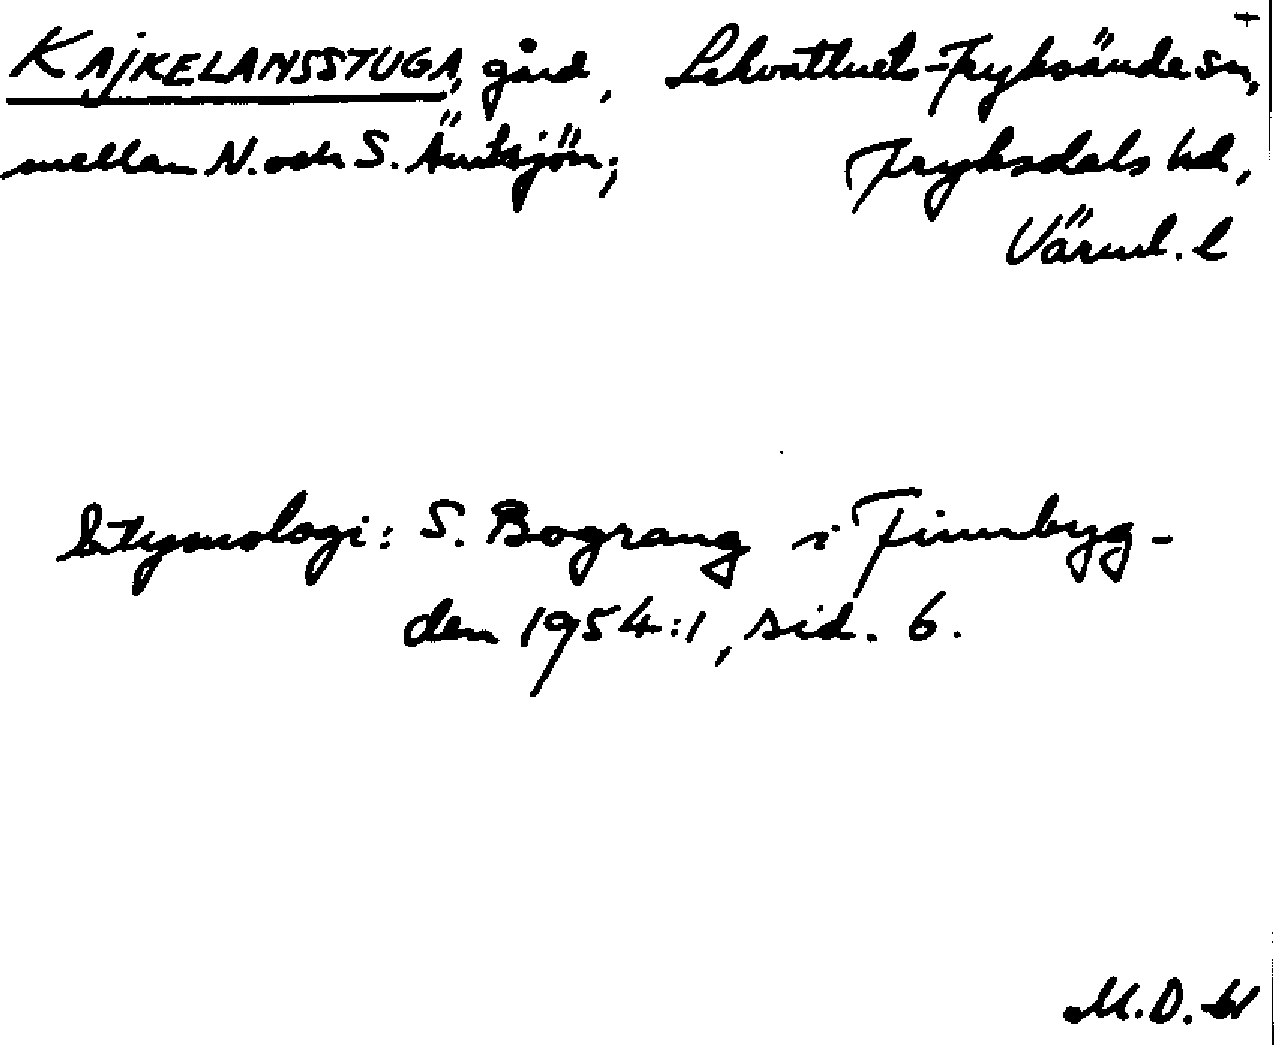 KAJKELANSSTUGA, gård, Lekvattnet-Fryksände sn,
mellan N. och S. Ärntsjön; Fryksdals hd,
Värml. l
Etymologi: S. Bograng i Finnbyg-
den 1954:1, sid. 6.
M.D.W